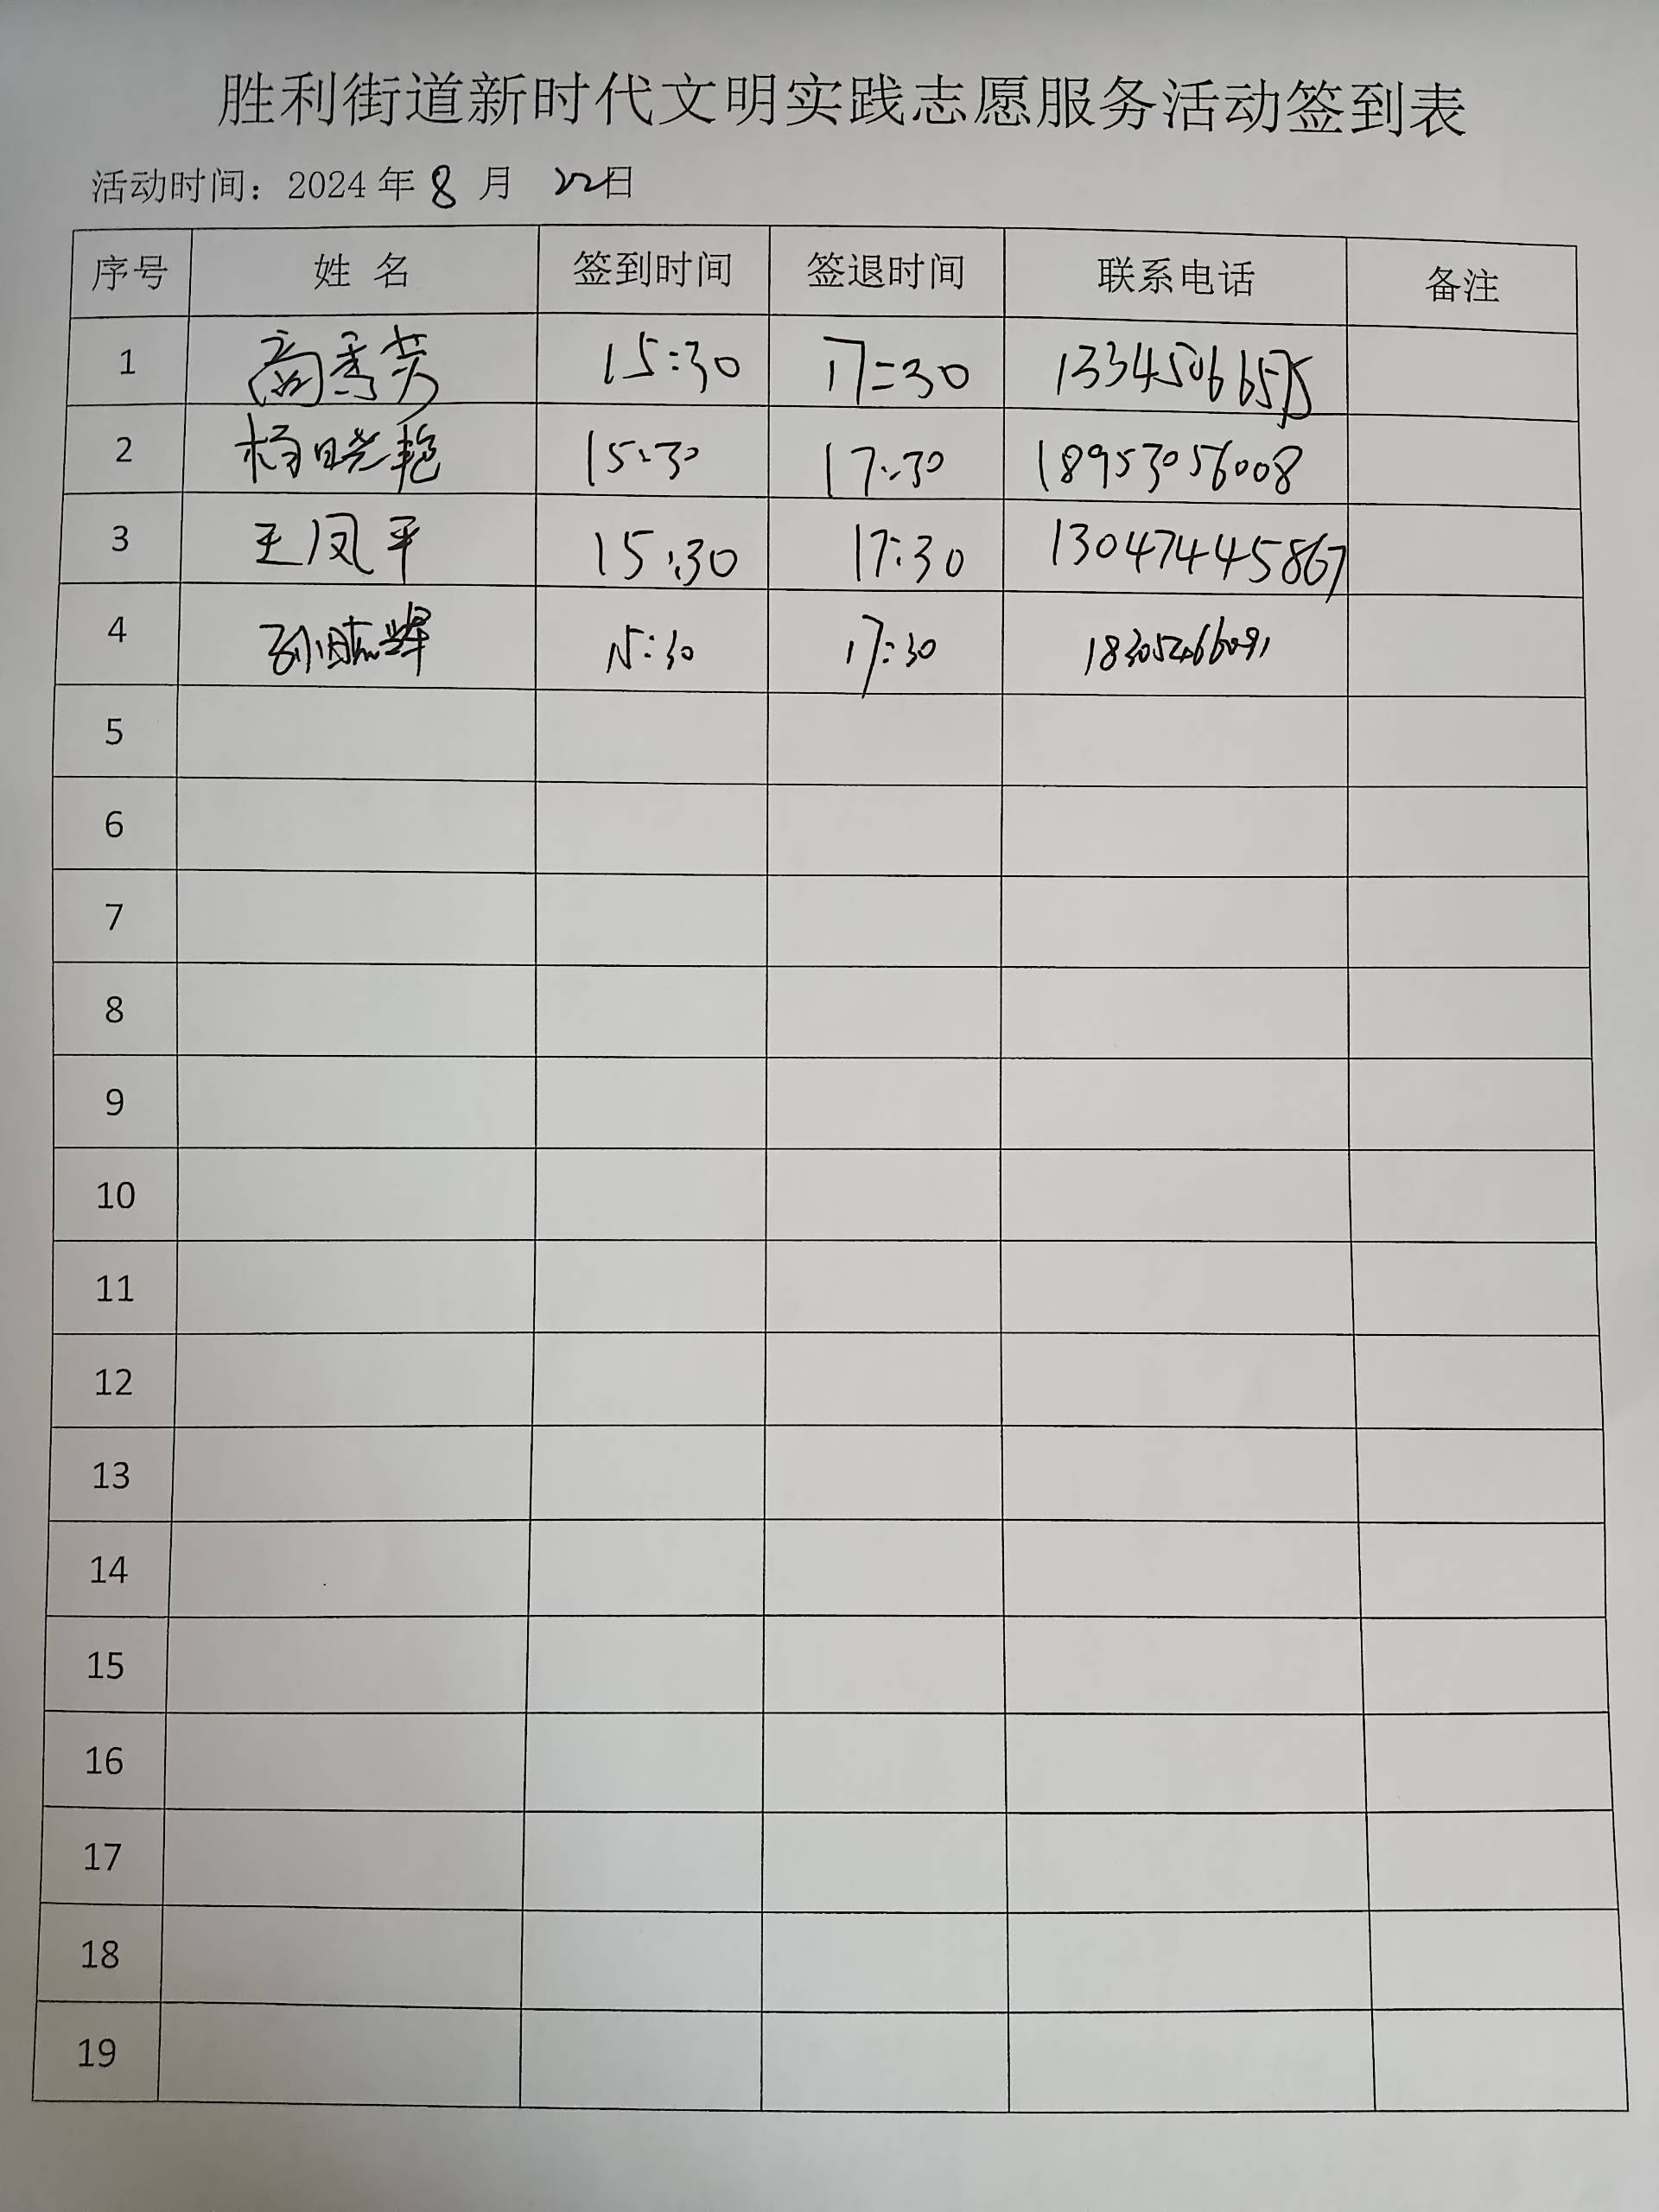 胜利街道新时代文明实践志愿服务活动签到表
活动时间：2024 年 8 月 22日
序号 姓 名 签到时间 签退时间 联系电话 备注
1 商秀芳 15:30 17:30 13345066575
2 杨晓艳 15:30 17:30 18953056008
3 王凤平 15:30 17:30 13047445867
4 孙 15:30 17:30
5
6
7
8
9
10
11
12
13
14
15
16
17
18
19